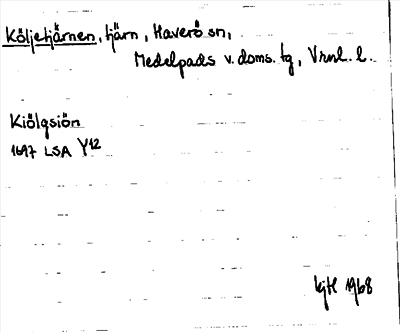 Köljetjärnen, tjärn, Haverö sn,
Medelpads v. doms. tg, Vrnl. l.
Kiölgsiön
1697 LSA Y12
kjtl 1968